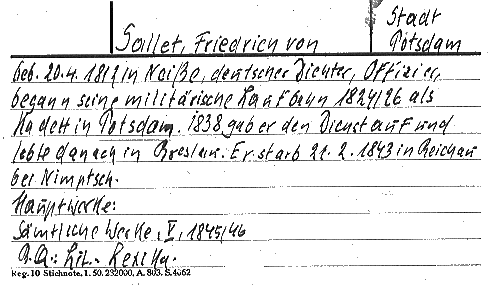 Sallet, Friedrich von
Stadt
Potsdam
Geb. 20.4. 1812 in Neiße, deutscher Dichter, Offizier,
begann seine militärische Laufbahn 1824/26 als
Kadett in Potsdam. 1838 gab er den Dienst auf und
lebte danach in Breslau. Er starb 21.2.1843 in Reichau
bei Nimptsch.
Hauptwerke:
Sämtliche Werke, V, 1845/46
B.A.: Lit.- Lexika.
Reg. 10 Stichnote, 1. 50. 232000. A. 803. S.4062